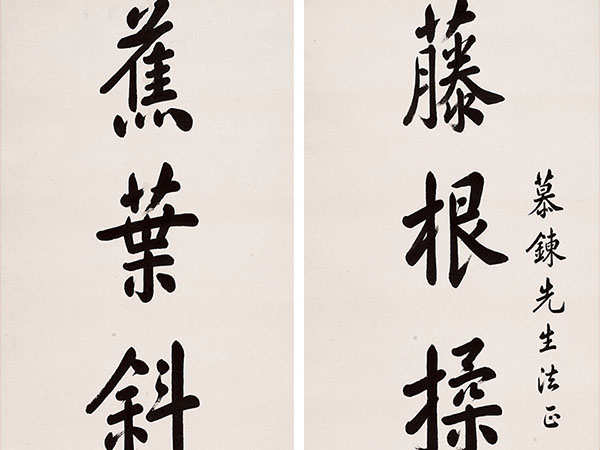 慕鍊先生法正
藤根揉
蕉葉斜